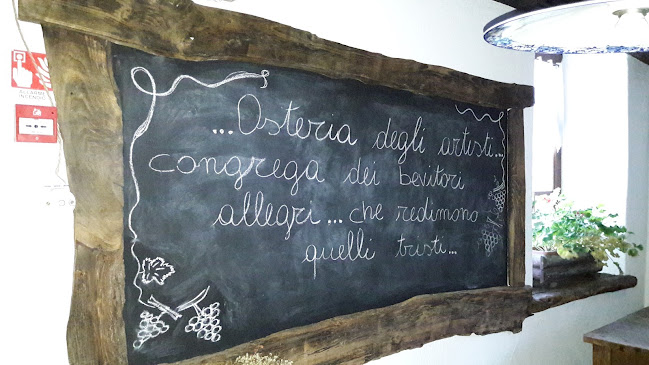 ALLARME
INCENDIO
...Osteria degli artisti...
congrega dei bevitori
allegri...che redimono
quelli tristi...